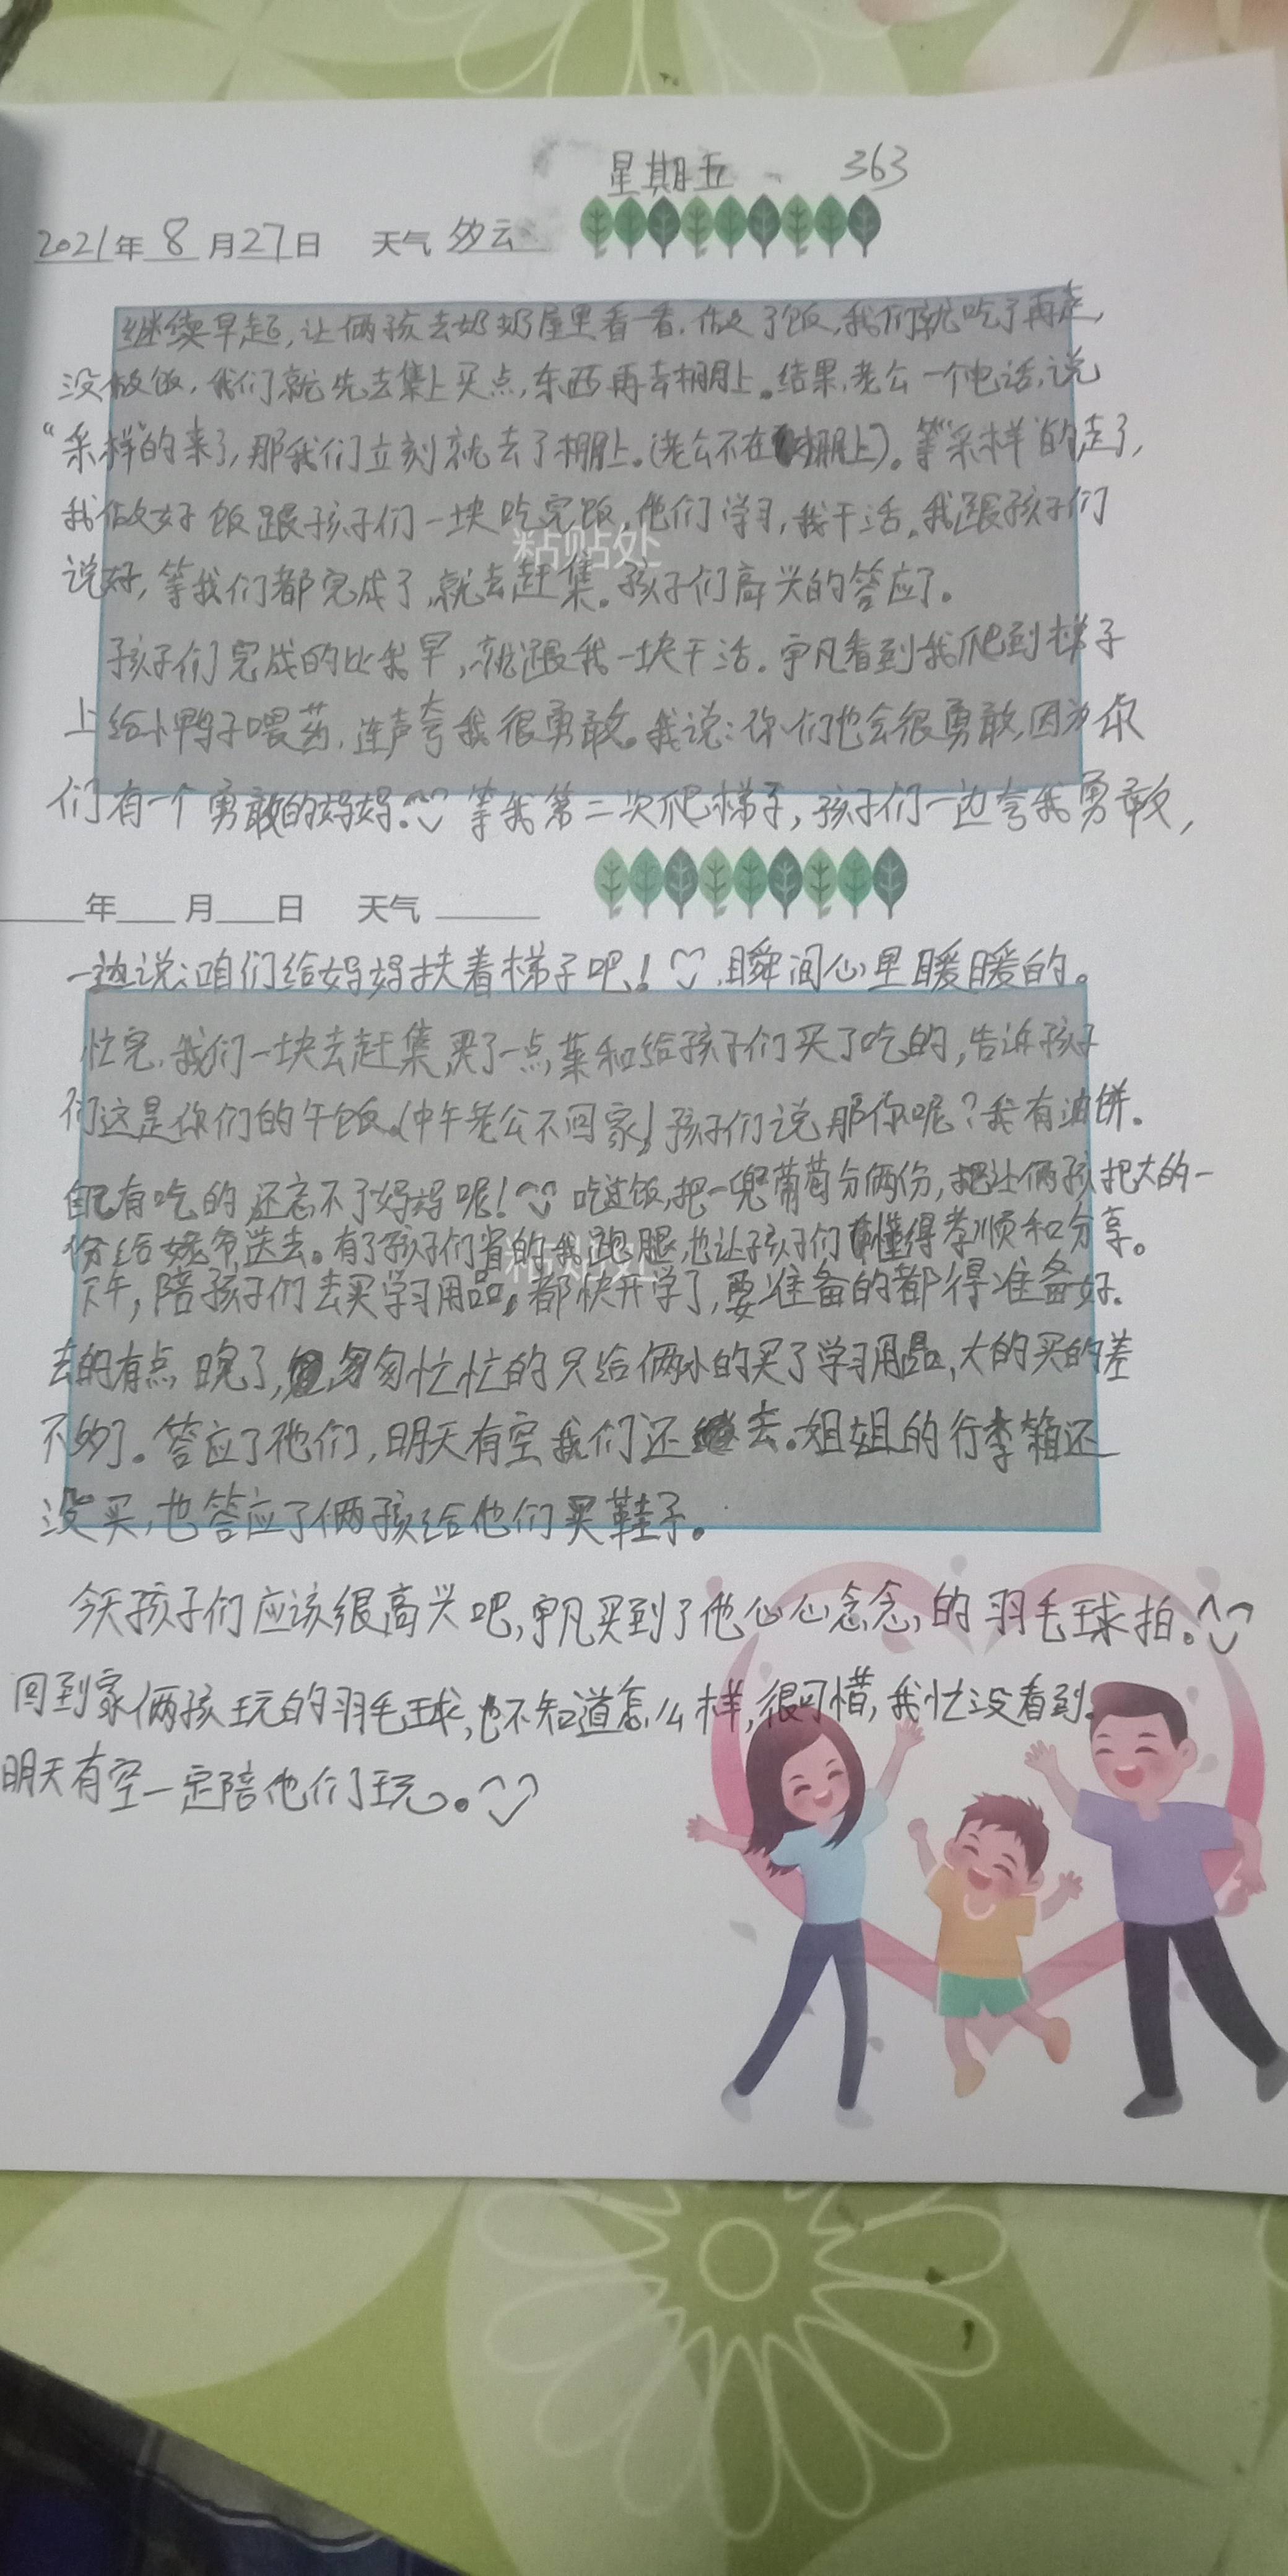 星期五 363
2021年8月27日 天气 多云
继续早起,让俩孩去奶奶屋里看一看.做了饭,我们就吃了再走,
没做饭,我们就先去集上买点,东西再去棚上。结果,老公一个电话,说
“采样”的来了,那我们立刻就去了棚上。(老公不在棚上)。等“采样”的走了,
我做好饭跟孩子们一块吃完饭,他们学习,我干活。我跟孩子们
粘贴处
说好,等我们都完成了,就去赶集。孩子们高兴的答应了。
孩子们完成的比我早,就跟我一块干活.宇凡看到我爬到梯子
上给小鸭子喂药,连声夸我很勇敢。我说:你们也会很勇敢,因为你
们有一个勇敢的妈妈.等我第二次爬梯子,孩子们一边夸我勇敢,
年 月 日 天气
一边说:咱们给妈妈扶着梯子吧!瞬间心里暖暖的。
忙完.我们一块去赶集,买了一点,菜和给孩子们买了吃的,告诉孩子
们这是你们的午饭.(中午老公不回家)孩子们说那你呢?我有油饼.
自己有吃的还忘不了妈妈呢!吃过饭,把一兜葡萄分俩份,让俩孩把大的一
份给姥爷送去。有了孩子们省的我跑腿,也让孩子们懂得孝顺和分享。
粘贴处
下午,陪孩子们去买学习用品。都快开学了,要准备的都得准备好.
去的有点晚了,匆匆忙忙的只给俩小的买了学习用品,大的买的差
不多了。答应了他们,明天有空我们还去.姐姐的行李箱还
没买,也答应了俩孩给他们买鞋子。
今天孩子们应该很高兴吧,宇凡买到了他心心念念的羽毛球拍。
回到家俩孩玩的羽毛球,也不知道怎么样,很可惜,我忙没看到.
明天有空一定陪他们玩。